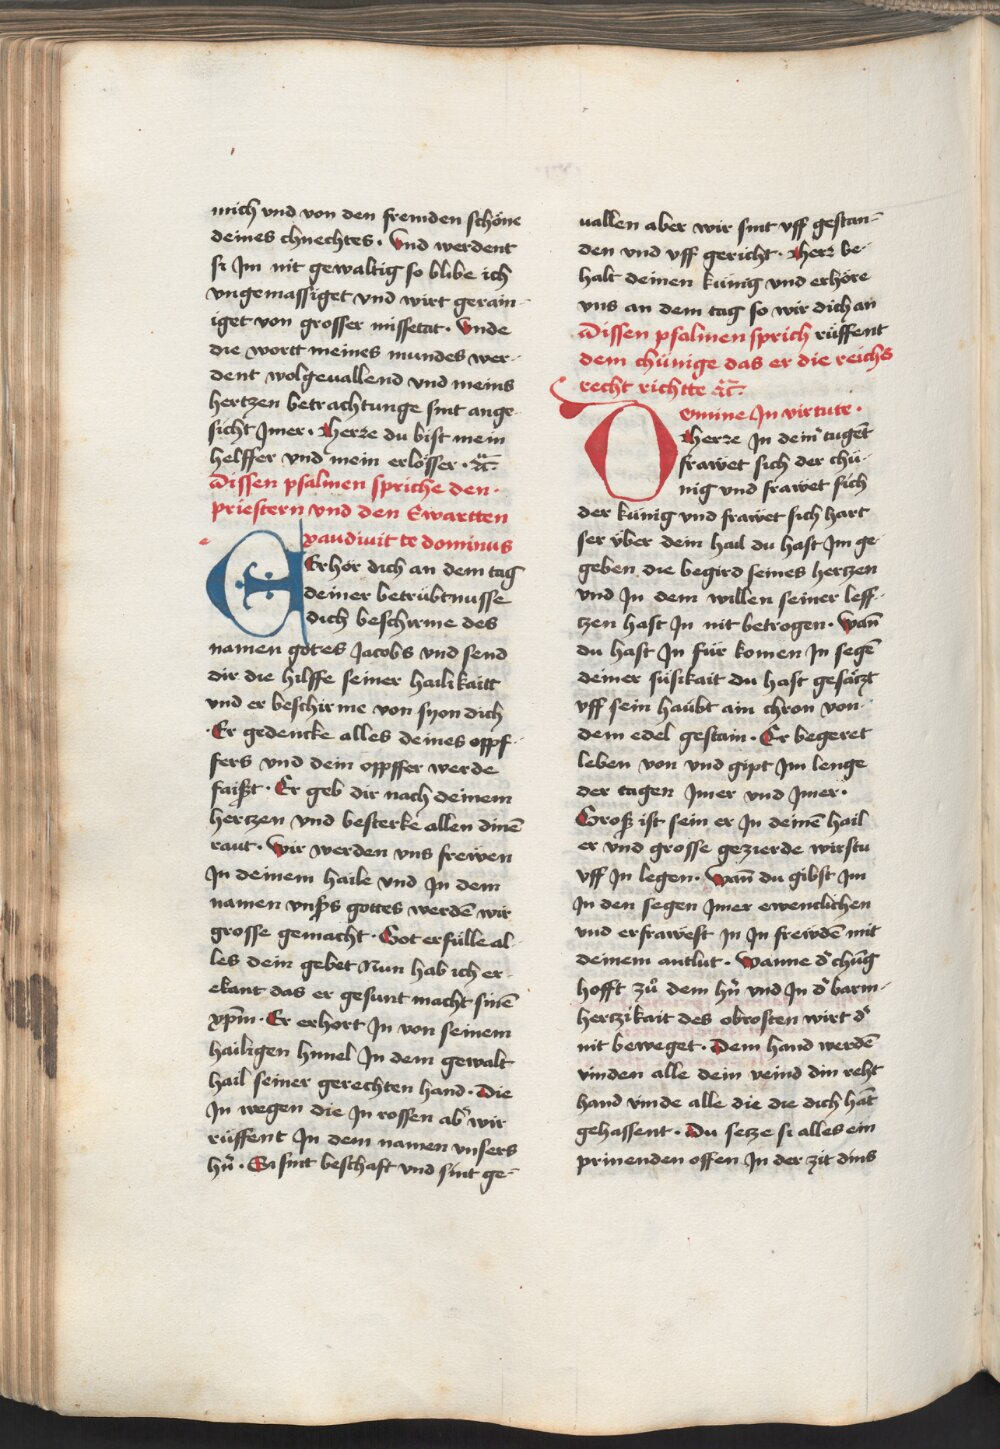 mich vnd von den fremden schöne
deines chnechtes · Vnd werdent
si Jm nit gewaltig so blibe ich
vngemassiget vnd wirt gerain-
iget von grosser missetat · Vnde
die wortt meines mundes wer-
dent wolgeuallend vnd meins
hertzen betrachtunge sint ange-
sicht Jmer · Herre du bist mein
helffer vnd mein erlösser · ꝛc̄
Dissen psalmen spriche den ·
priestern vnd den Ewartten
Exaudiuit te dominus
Erhör dich an dem tag
deiner betrübtnusse
dich beschirme des
namen gotes Jacobs vnd send
dir die hilffe seiner hailikaitt
vnd er beschirme von syon dich
· Er gedencke alles deines oppf-
fers vnd dein oppffer werde
faißt · Er geb dir nach deinem
hertzen vnd besterke allen dinē
raut · Wir werden vns frewen
Jn deinem haile vnd Jn dem
namen vnsers gottes werdē wir
grosse gemacht · Got erfülle al-
les dein gebet Nun hab ich er-
ekant das er gesunt macht sinē
xp̄m · Er erhort Jn von seinem
hailigen himel Jn dem gewalt
hail seiner gerechten hand · Die
Jn wegen die Jn rossen ab̉ wir
rüffent Jn dem namen vnsers
hr̄n · Si sint beschaft vnd sint ge-
uallen aber wir sint vff gestan-
den vnd vff gericht · Herr be-
halt deinen künig vnd erhöre
vns an dem tag so wir dich an
rüffent
Dissen psalmen sprich
dem chünige das er die reichs
recht richtte ꝛc̄ ·
Domine Jn virtute ·
Herre Jn dein̉ tugēt
frawet sich der chü-
nig vnd frawet sich
der künig vnd frawet sich hart
ser v̈ber dem hail du hast Jm ge-
geben die begird seines hertzen
vnd Jn dem willen seiner leff-
tzen hast Jn nit betrogen · Wan̄
du hast Jn für komen Jn segē
deiner süsikait du hast gesätzt
vff sein haübt ain chron von ·
dem edel gestain · Er begeret
leben von vnd gipt Jm lenge
der tagen Jmer vnd Jmer ·
Groß ist sein er Jn deinē hail
er vnd grosse gezierde wirstu
vff Jn legen · Wan̄ du gibst Jm
Jn den segen Jmer ewenclichen
vnd erfrawest Jn Jn frewdē mit
deinem antlut · Wanne d̉ chūg
hofft zů dem hr̄n vnd Jn d̉ barm-
hertzikait des obrosten wirt d̉
nit beweget · Dem hand werdē
vinden alle dein veind din reht
hand vinde alle die die dich hāt
gehassent · Du setze si alles ein
prinenden offen Jn der zit dins